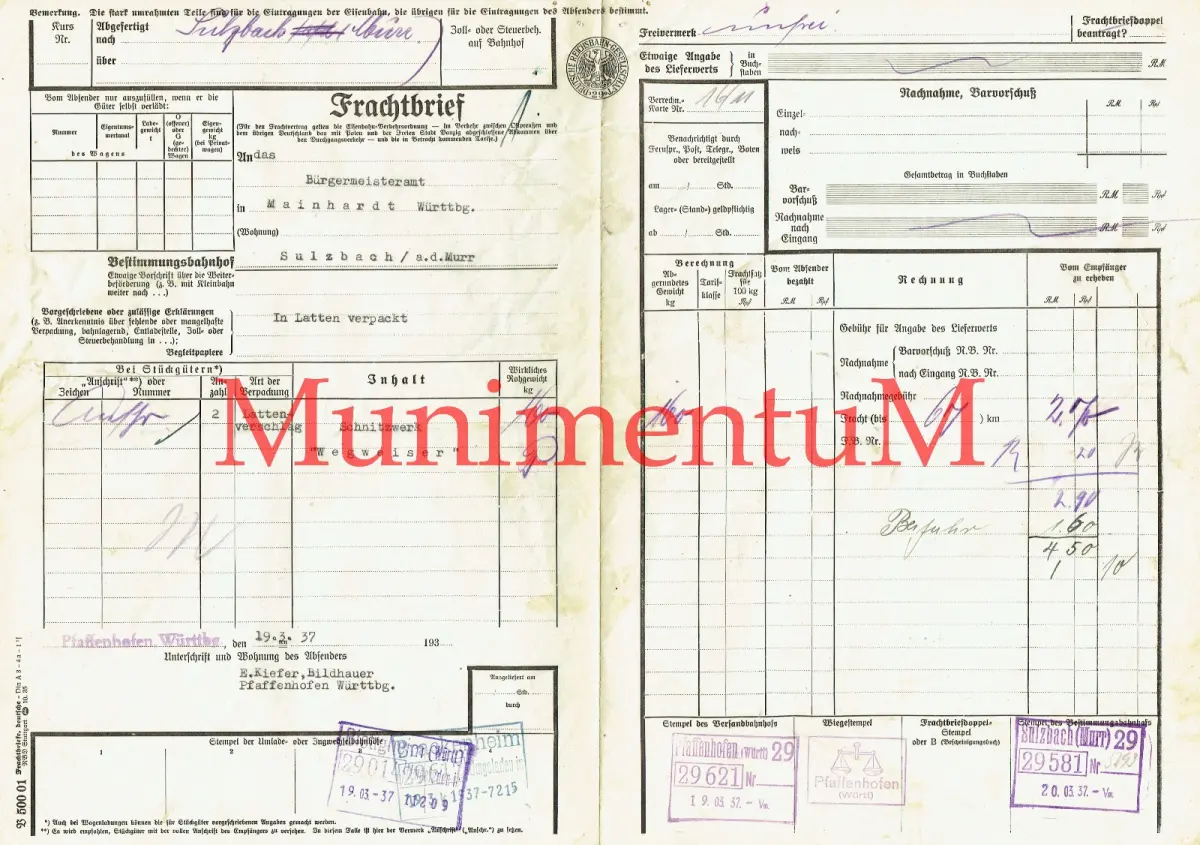 Bemerkung. Die stark umrahmten Teile sind für die Eintragungen der Eisenbahn, die übrigen für die Eintragungen des Absenders bestimmt.
Kurs
Nr.
Abgefertigt
nach Sulzbach Murr
über
Zoll- oder Steuerbeh.
auf Bahnhof
DEUTSCHE REICHSBAHN-GESELLSCHAFT
29
Vom Absender nur auszufüllen, wenn er die
Güter selbst verlädt:
Nummer
Eigentumsmerkmal
Ladegewicht
t
O
(offener)
oder
G
(gedeckter)
Wagen
Eigengewicht
kg
(bei Privatwagen)
des Wagens
Frachtbrief
(Für den Frachtvertrag gelten die Eisenbahn-Verkehrsordnung — im Verkehr zwischen Ostpreußen und
dem übrigen Deutschland das mit Polen und der Freien Stadt Danzig abgeschlossene Abkommen über
den Durchgangsverkehr — und die in Betracht kommenden Tarife.)
An das
Bürgermeisteramt
in Mainhardt Württbg.
(Wohnung)
Bestimmungsbahnhof
Sulzbach/a.d.Murr
Etwaige Vorschrift über die Weiterbeförderung (z. B. mit Kleinbahn
weiter nach . . .)
Vorgeschriebene oder zulässige Erklärungen
(z. B. Anerkenntnis über fehlende oder mangelhafte
Verpackung, bahnlagernd, Entladestelle, Zoll- oder
Steuerbehandlung in . . .);
Begleitpapiere
In Latten verpackt
Bei Stückgütern*)
„Anschrift"**) oder
Zeichen Nummer
Anzahl
Art der
Verpackung
Inhalt
Wirkliches
Rohgewicht
kg
2 Lattenverschlag
Schnitzwerk
"Wegweiser"
160
Pfaffenhofen Württbg., den 19.3.37 193
Unterschrift und Wohnung des Absenders
E.Kiefer,Bildhauer
Pfaffenhofen Württbg.
Ausgeliefert am
Std.
durch
Stempel der Umlade- oder Eingwechselbahnhöfe
1
2
19.03.-37
*) Auch bei Wagenladungen können die für Stückgüter vorgesehenen Angaben gemacht werden.
**) Es wird empfohlen, Stückgüter mit der vollen Anschrift des Empfängers zu versehen. In diesem Falle ist hier der Vermerk „Anschrift" („Anschr.") zu setzen.
B 500 01 Frachtbriefe, deutsche
Freivermerk unfrei
Frachtbriefdoppel
beantragt?
Etwaige Angabe
des Lieferwerts
in
Buchstaben
RM
Verrechn.-
Karte Nr.
Benachrichtigt durch
Fernspr., Post, Telegr., Boten
oder bereitgestellt
am / Std.
Lager- (Stand-) geldpflichtig
ab / Std.
Nachnahme, Barvorschuß
RM Rpf
Einzel-
nach-
weis
Gesamtbetrag in Buchstaben
Barvorschuß
RM Rpf
Nachnahme
nach
Eingang
RM Rpf
Berechnung
Abgerundetes
Gewicht
kg
Tarifklasse
Frachtsatz
für
100 kg
Rpf
Vom Absender
bezahlt
RM Rpf
Rechnung
Vom Empfänger
zu erheben
RM Rpf
Gebühr für Angabe des Lieferwerts
Nachnahme
Barvorschuß N.B. Nr.
nach Eingang N.B. Nr.
Nachnahmegebühr
160
Fracht (bis 67) km
F.B. Nr.
20
2.90
1.60
4 50
MunimentuM
Stempel des Versandbahnhofs
Pfaffenhofen (Württ) 29
29621 Nr
19.03.37.-Vm.
Wiegestempel
Pfaffenhofen
(Württ)
Frachtbriefdoppel-
Stempel
oder B (Bescheinigungsbuch)
Stempel des Bestimmungsbahnhofs
Sulzbach (Murr) 29
29581 Nr
20.03.37.-Vm.